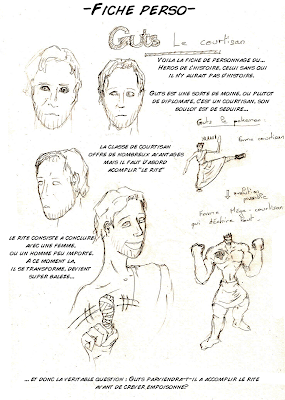 -Fiche perso-
Guts Le courtisan
Voila la fiche de personnage du...
Heros de l'histoire, celui sans qui
il n'y aurait pas d'histoire.
Guts est une sorte de moine, ou plutot
de diplomate, c'est un courtisan, son
boulot est de seduire...
Guts le pokemon :
forme courtisan
La classe de courtisan
offre de nombreux avantages
mais il faut d'abord
acomplir "le rite"
↓ evolution
possible
Forme Mega-courtisan
qui déchire tout
Le rite consiste a conclure
avec une femme,
ou un homme peu importe.
A ce moment la,
il se transforme, devient
super balèze...
... et donc la veritable question : Guts parviendra-t-il a accomplir le rite
avant de crever empoisonné?